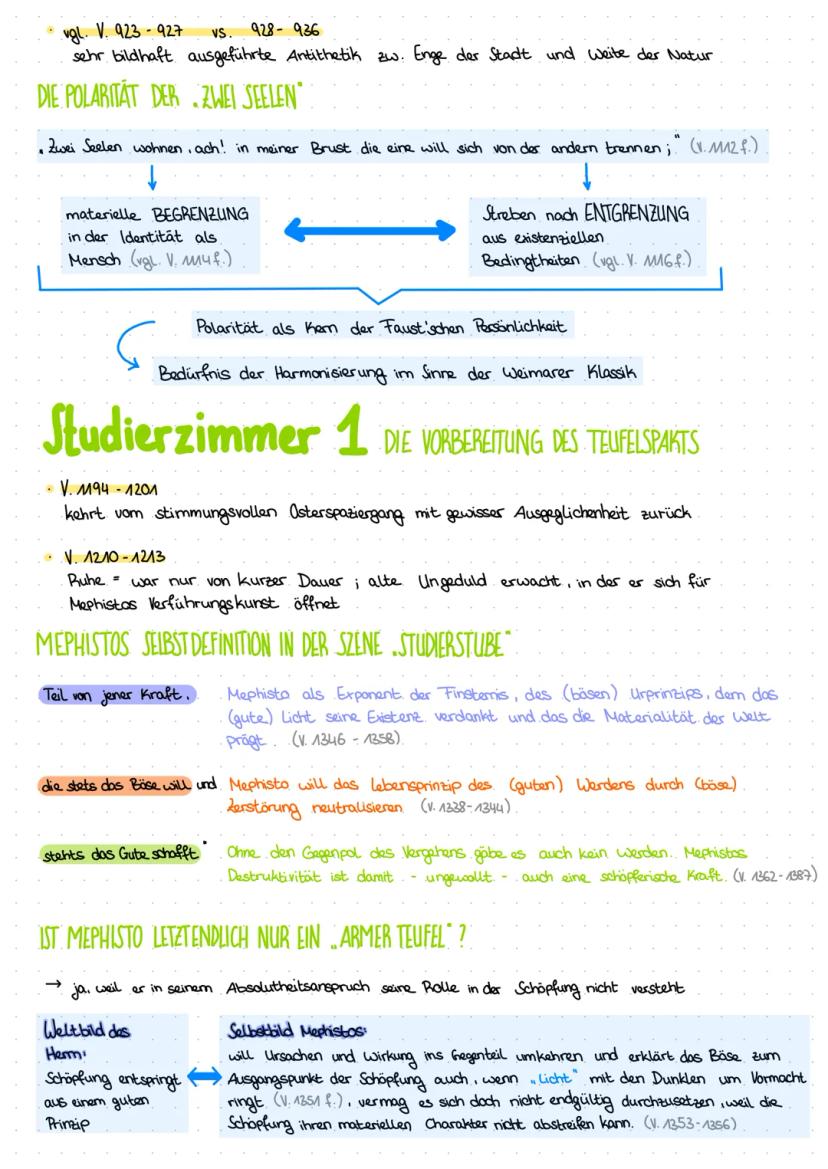 • vgl. V. 923 - 927 vs. 928 - 936
sehr bildhaft ausgeführte Antithetik zw. Enge der Stadt und Weite der Natur
DIE POLARITÄT DER „ZWEI SEELEN"
„Zwei Seelen wohnen, ach! in meiner Brust die eine will sich von der andern trennen;" (V. 1112 f.)
materielle BEGRENZUNG
in der Identität als
Mensch (vgl. V. 1114 f.)
Streben nach ENTGRENZUNG
aus existenziellen
Bedingtheiten (vgl. V. 1116 f.)
Polarität als Kern der Faust'schen Persönlichkeit
Bedürfnis der Harmonisierung im Sinne der Weimarer Klassik
Studierzimmer 1 DIE VORBEREITUNG DES TEUFELSPAKTS
• V. 1194 - 1201
kehrt vom stimmungsvollen Osterspaziergang mit gewisser Ausgeglichenheit zurück
• V. 1210 - 1213
Ruhe = war nur von kurzer Dauer ; alte Ungeduld erwacht, in der er sich für
Mephistos Verführungskunst öffnet
MEPHISTOS SELBSTDEFINITION IN DER SZENE „STUDIERSTUBE"
Teil von jener Kraft, Mephisto als Exponent der Finsternis, des (bösen) Urprinzips, dem das
(gute) Licht seine Existenz verdankt und das die Materialität der Welt
prägt. (V. 1346 - 1358)
die stets das Böse will und Mephisto will das Lebensprinzip des (guten) Werdens durch (böse)
Zerstörung neutralisieren (V. 1338 - 1344)
stehts das Gute schafft" Ohne den Gegenpol des Vergehens gäbe es auch kein Werden. Mephistos
Destruktivität ist damit - ungewollt - auch eine schöpferische Kraft. (V. 1362 - 1387)
IST MEPHISTO LETZTENDLICH NUR EIN „ARMER TEUFEL" ?
→ ja, weil er in seinem Absolutheitsanspruch seine Rolle in der Schöpfung nicht versteht
Weltbild des
Herrn:
Schöpfung entspringt
aus einem guten
Prinzip
Selbstbild Mephistos:
will Ursachen und Wirkung ins Gegenteil umkehren und erklärt das Böse zum
Ausgangspunkt der Schöpfung auch, wenn „Licht" mit den Dunklen um Vormacht
ringt (V. 1351 f.), vermag es sich doch nicht endgültig durchzusetzen, weil die
Schöpfung ihren materiellen Charakter nicht abstreifen kann. (V. 1353 - 1356)